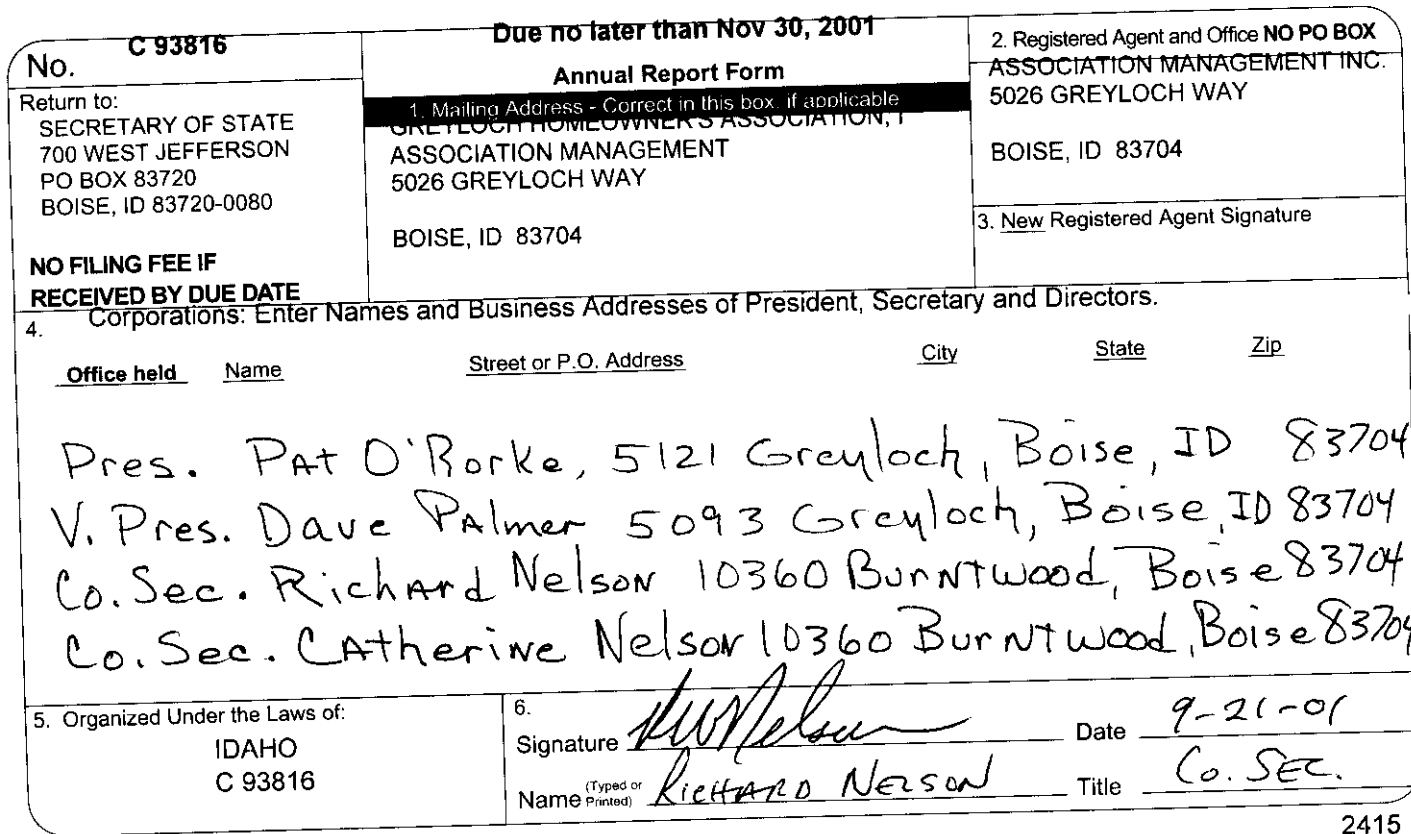 No. C 93816
Return to:
SECRETARY OF STATE
700 WEST JEFFERSON
PO BOX 83720
BOISE, ID 83720-0080
NO FILING FEE IF
RECEIVED BY DUE DATE
Due no later than Nov 30, 2001
Annual Report Form
1. Mailing Address - Correct in this box, if applicable
GREYLOCH HOMEOWNER'S ASSOCIATION, I
ASSOCIATION MANAGEMENT
5026 GREYLOCH WAY
BOISE, ID 83704
2. Registered Agent and Office NO PO BOX
ASSOCIATION MANAGEMENT INC.
5026 GREYLOCH WAY
BOISE, ID 83704
3. New Registered Agent Signature
4. Corporations: Enter Names and Business Addresses of President, Secretary and Directors.
Office held Name Street or P.O. Address City State Zip
Pres. PAt O'Rorke, 5121 Greyloch, Boise, ID 83704
V. Pres. Dave PAlmer 5093 Greyloch, Boise, ID 83704
Co. Sec. RichArd Nelson 10360 BurNTwood, Boise 83704
Co. Sec. CAtheriNe Nelson 10360 BurNTwood, Boise 83704
5. Organized Under the Laws of:
IDAHO
C 93816
6.
Signature RW Nelson Date 9-21-01
Name (Typed or Printed) RICHARD NELSON Title Co. SEC.
2415